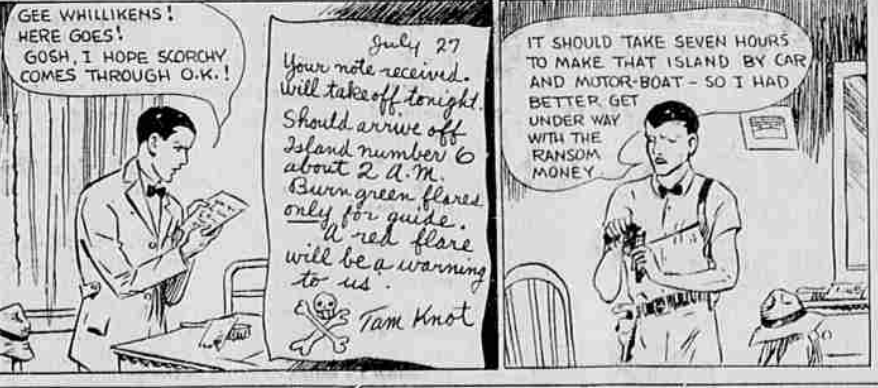 GEE WHILLIKENS!
HERE GOES!
GOSH, I HOPE SCORCHY
COMES THROUGH O.K.!
July 27
Your note received.
Will take off tonight.
Should arrive off
Island number 6
about 2 A.M.
Burn green flares
only for guide.
A red flare
will be a warning
to us.
Tam Knot
IT SHOULD TAKE SEVEN HOURS
TO MAKE THAT ISLAND BY CAR
AND MOTOR-BOAT - SO I HAD
BETTER GET
UNDER WAY
WITH THE
RANSOM
MONEY